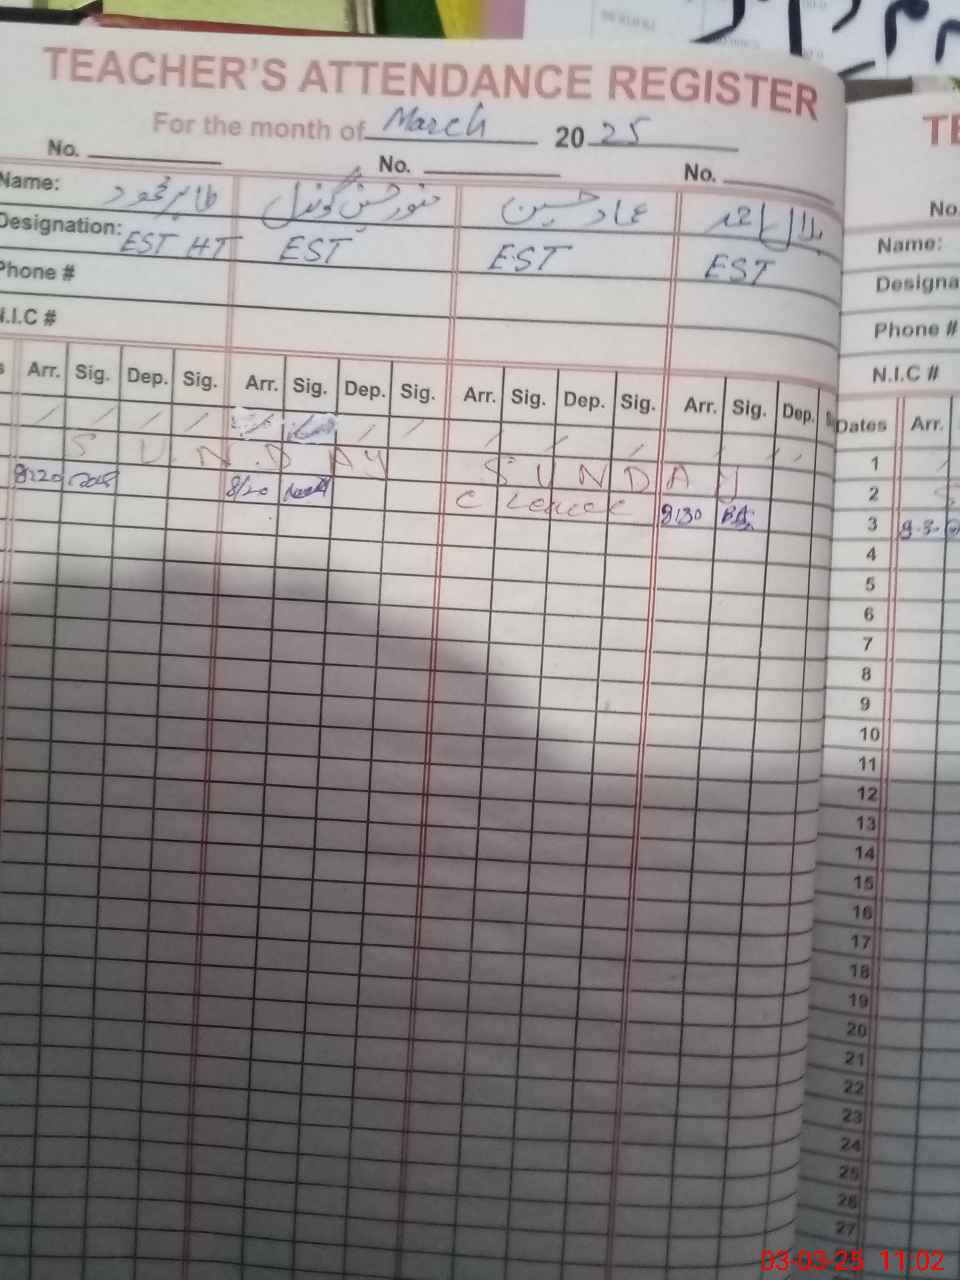 TEACHER'S ATTENDANCE REGISTER
For the month of March 2025
No. No. No.
Name: طاہر محمود منور حسین گوندل عماد حسین بلال احمد
Designation: EST HT EST EST EST
Phone #
N.I.C #
Arr. Sig. Dep. Sig. Arr. Sig. Dep. Sig. Arr. Sig. Dep. Sig. Arr. Sig. Dep.
SUNDAY SUNDAY
8:20 8/20 C Leave 8:30
TE
No.
Name:
Designa
Phone #
N.I.C #
Dates Arr.
1
2 S
3
4
5
6
7
8
9
10
11
12
13
14
15
16
17
18
19
20
21
22
23
24
25
26
27
03-03-25 11:02